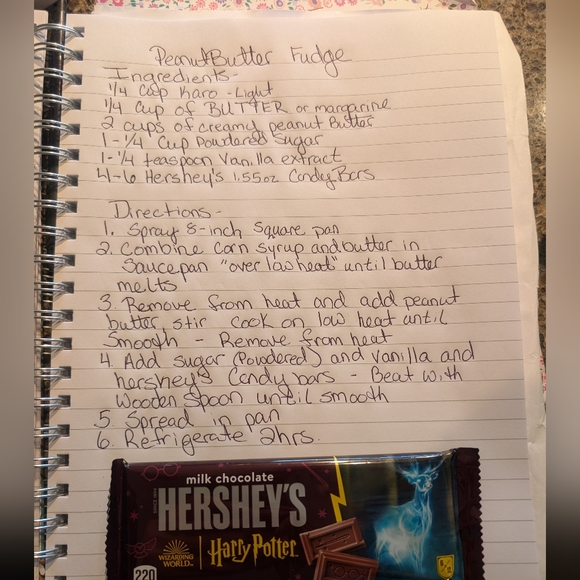 Peanut Butter Fudge
Ingredients -
1/4 Cup Karo - Light
1/4 Cup of BUTTER or margarine
2 cups of creamy peanut Butter
1-1/4 Cup Powdered Sugar
1-1/4 teaspoon Vanilla extract
4-6 Hershey's 1.55oz Candy Bars
Directions -
1. Spray 8-inch Square pan
2. Combine Corn syrup and butter in
Saucepan "over low heat" until butter
melts
3. Remove from heat and add peanut
butter stir cook on low heat until
Smooth - Remove from heat
4. Add sugar (Powdered) and vanilla and
hershey's Candy bars - Beat with
Wooden Spoon until smooth
5. Spread in pan
6. Refrigerate 2hrs.
milk chocolate
HERSHEY'S
WIZARDING WORLD
Harry Potter
220